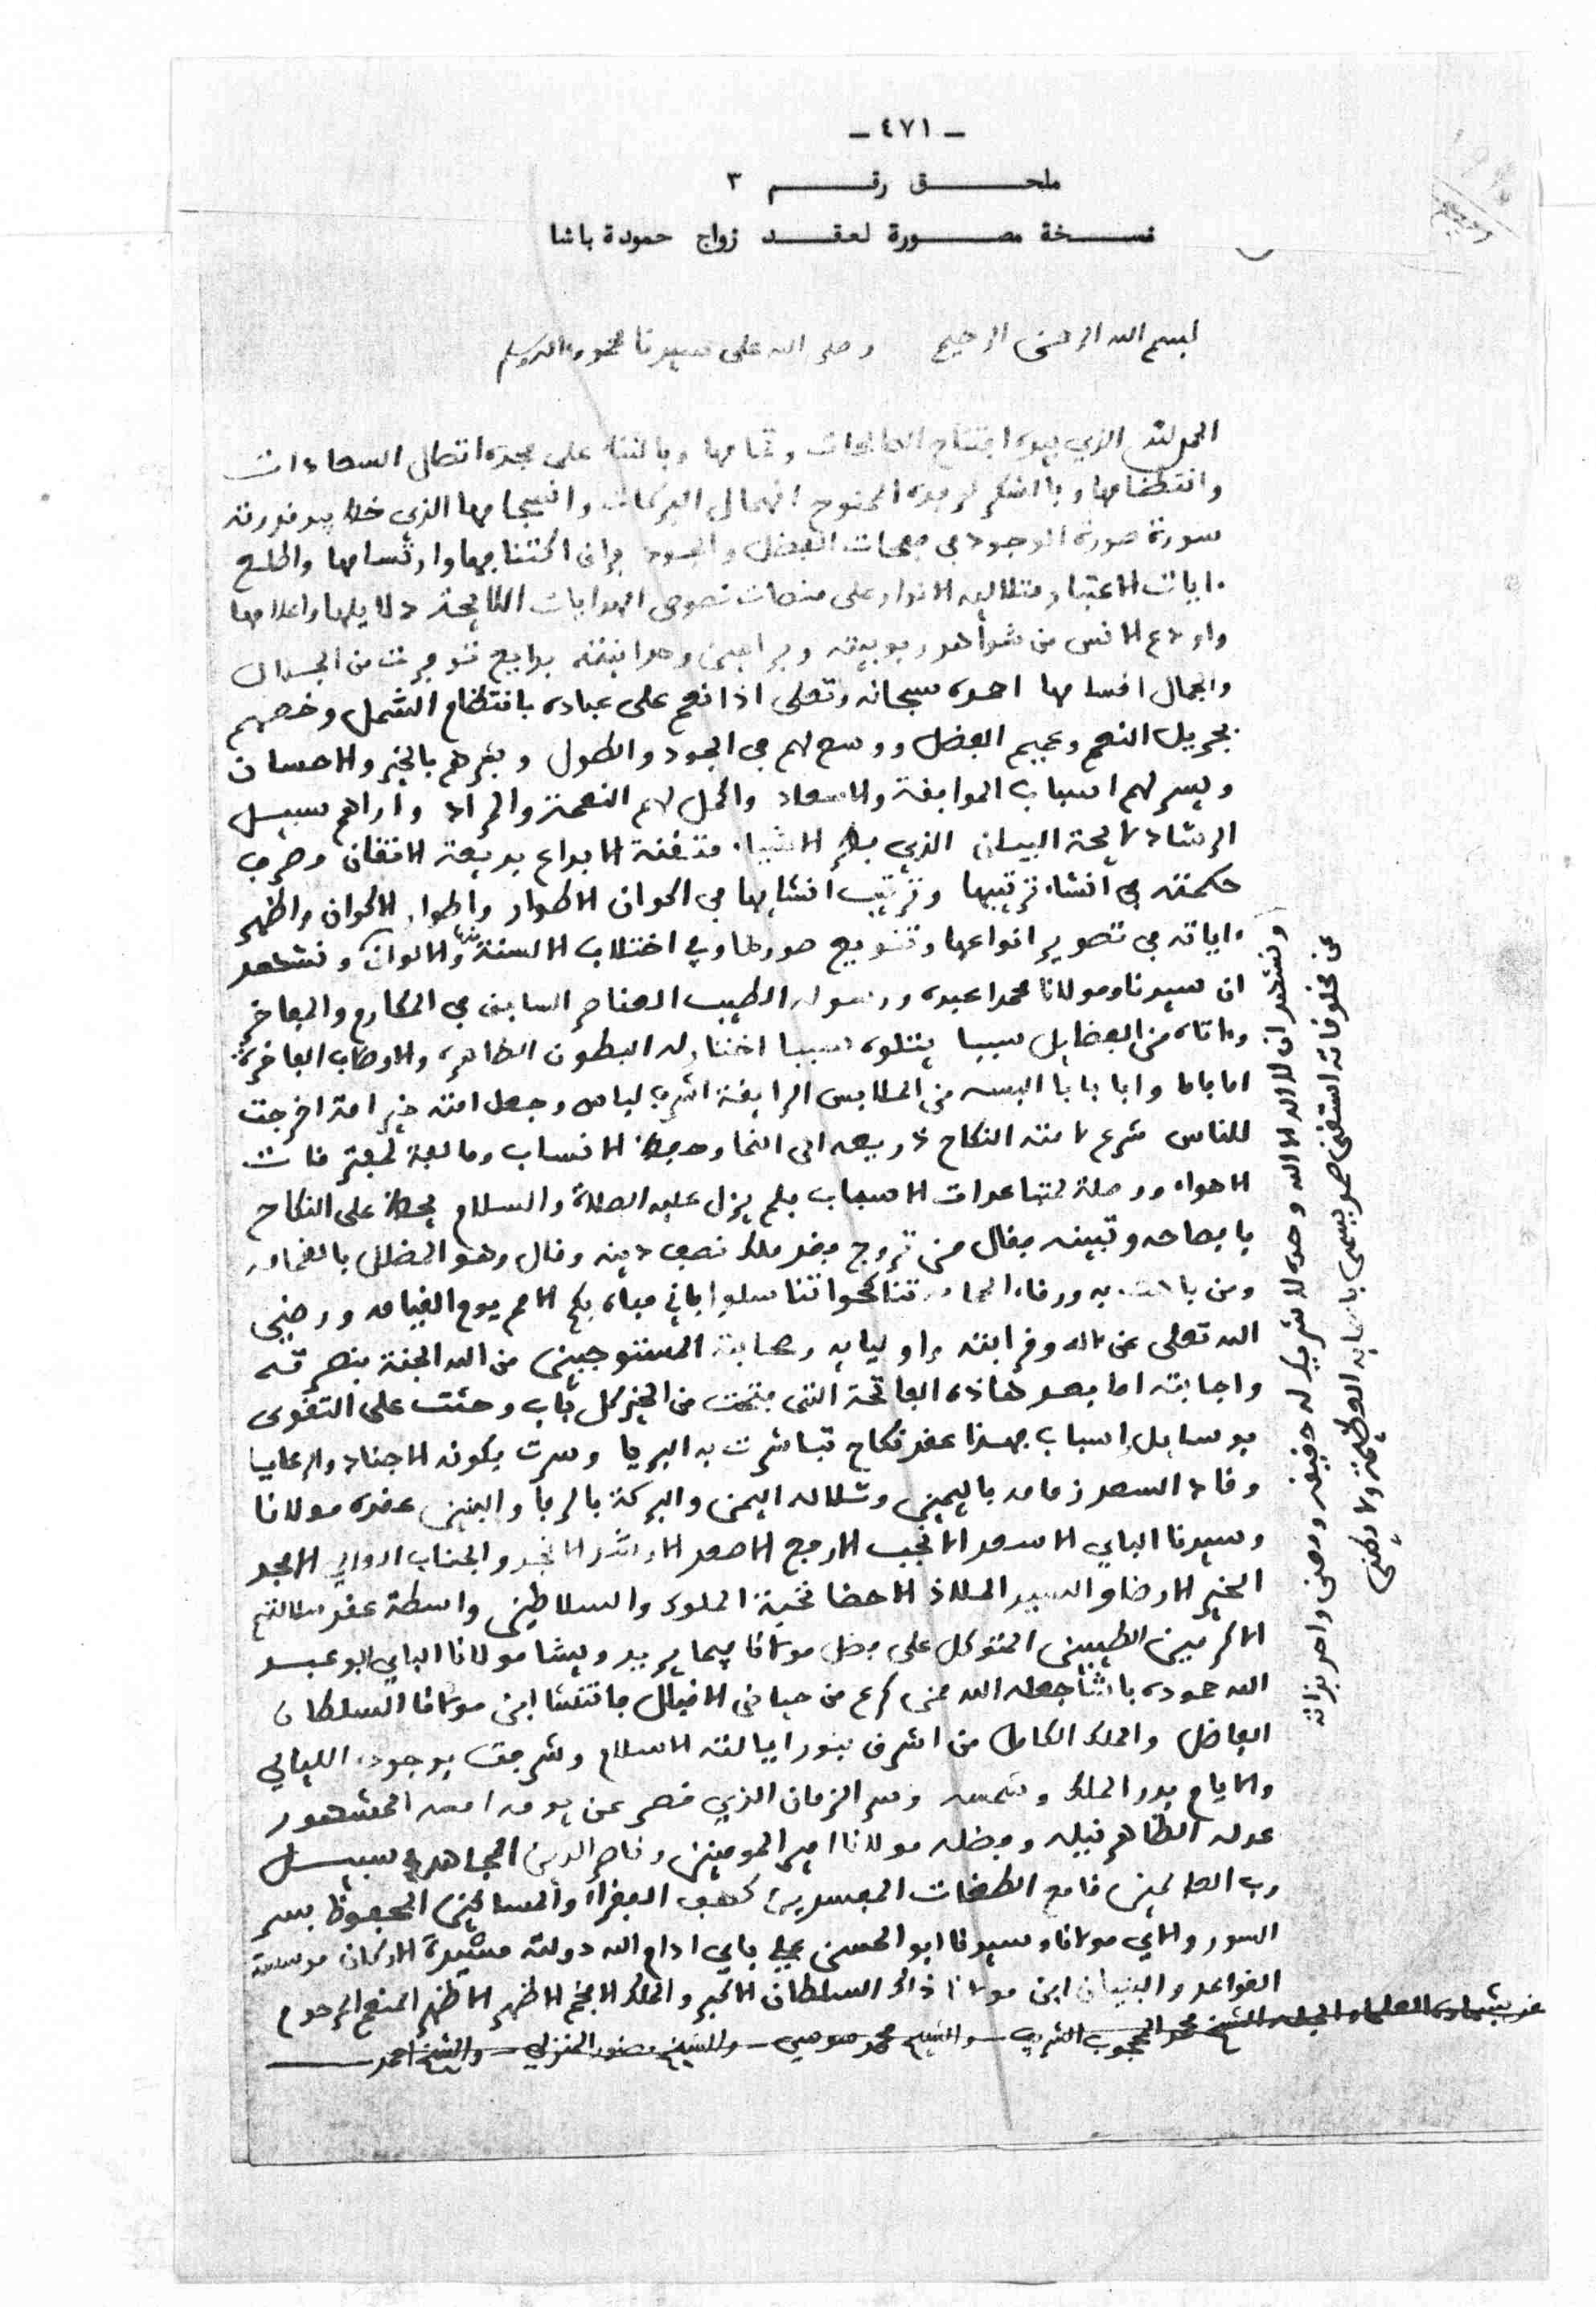 - ٤٧١ -
ملحق رقم ٣
نسخة مصورة لعقد زواج حمودة باشا
بسم الله الرحمن الرحيم وصلى الله على سيدنا محمد واله وسلم
الحمد لله الذي بيده افتتاح الصالحات وتمامها وبالثناء على مجده اتصال السعادات
وانتظامها وبالشكر انهمال البركات وانسجامها الذي خط بيد قدرته
سورة صورة الوجود في صفحات الفضل والجود وارتسامها واطلع
ءايات الاعتبار متلالية الانوار على منصات نصوص الهدايات اللايحة دلايلها واعلامها
واودع الانس من شواهد ربوبيته وبراهين وحدانيته بدايع تنوعت من الجلال
والجمال اقسامها احمده سبحانه وتعلى اذ انعم على عباده بانتظام الشمل وخصهم
بجزيل النعم وعميم الفضل ووسع لهم في الجود والطول وبشرهم بالخير والاحسان
ويسر لهم اسباب الموافقة والاسعاد واكمل لهم النعمة والمراد واراهم سبيل
الرشاد لايحة البيان الذي فطر الاشياء متقنة الابداع بديعة الاتقان وصرف
حكمته في انشاء ترتيبها وترتيب انشايها في اكوان الاطوار واطوار الاكوان واظهر
ءاياته في تصوير انواعها وتنويع صورها وفي اختلاف الالسنة والالوان ونشهد
ان سيدنا ومولانا محمدا عبده ورسوله الطيب العناصر السابق في المكارم والمفاخر
وءاتاه من الفضايل سببا يتلوه سببا اختار له البطون الطاهرة والاوصاف الفاخرة
اما فاما وابا فابا البسه من الملابس الرايقة اشرف لباس وجعل امته خير امة اخرجت
للناس شرع لامته النكاح ذريعة الى النما وحفظ الانساب ومالفة لمفترقات
الاهواء ووصلة لمتباعدات الاسباب فلم يزل عليه الصلاة والسلام يحظ على النكاح
بافصاحه وتبيينه فقال من تزوج فقد ملك نصف دينه وقال وهو المضلل بالغمامه
ومن تناكحوا تناسلوا فاني مباه بكم الامم يوم القيامه ورضي
الله تعلى عن ءاله وقرابته واوليايه وصحابته المستوجبين من الله الجنة بنصرته
واجابته اما بعد هاذه الفاتحة التي فتحت من الخير كل باب وحثت على التقوى
بوسايل اسباب فهذا عقد نكاح تباشرت به البرايا وسرت بكونه الاجناد والرعايا
وقاد السعد زمامه باليمين وشلاله اليمن والبركة بالرفا والبنين عقده مولانا
وسيدنا الباي الاسعد الانجب الارفع الاصعد الارشد الانجد والجناب الامجد
الخير الارضا والسيد الملاذ الاحضا نخبة الملوك والسلاطين واسطة عقد
الاكرمين الطيبين المتوكل على فضل مولانا فيما يريد ويشا مولانا الباي ابو عبد
الله حموده باشا جعله الله ممن كرع من حياض الاقبال فانتشا ابن مولانا السلطان
الفاضل والملك الكامل من اشرق بنور ايالته الاسلام وشرفت بوجوده الليالي
والايام بدر الملك وشمسه وسر الزمان الذي قصر عن يومه امسه المشهور
عدله الظاهر نبله وفضله مولانا امير المومنين وناصر الدين المجاهد في سبيل
رب العالمين قامع الطغات المفسدين كهف الفقراء والمساكين المحفوظ بسر
السور والاي مولانا وسيدنا ابو الحسن علي باي ادام الله دولته مشيدة الاركان موسسة
القواعد والبنيان ابن مولانا ذالك السلطان الاكبر والملك الافخم الاظهر الاطهر المنعم المرحوم
الشيخ محمد المحجوب الشريف والشيخ محمد سويسي والشيخ منصور المنزلي والشيخ احمد
ونشهد ان لا اله الا الله وحده لا شريك له
عن مخلوقاته استغنى